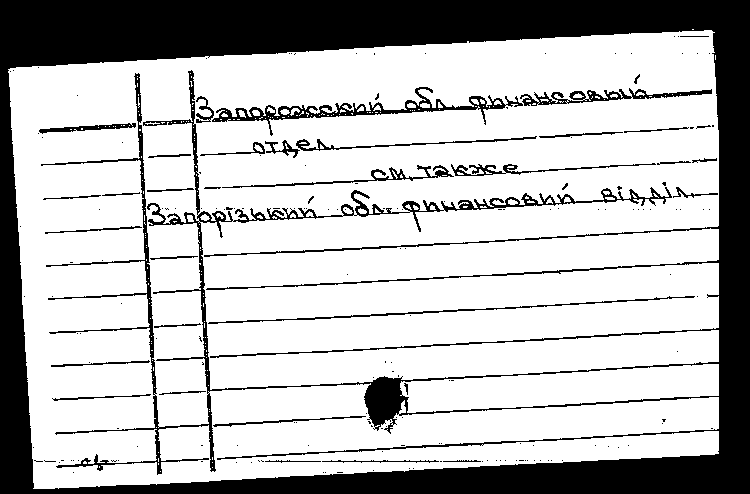 Запорожский обл. финансовый
отдел.
см. также
Запорізький обл. финансовий відділ.